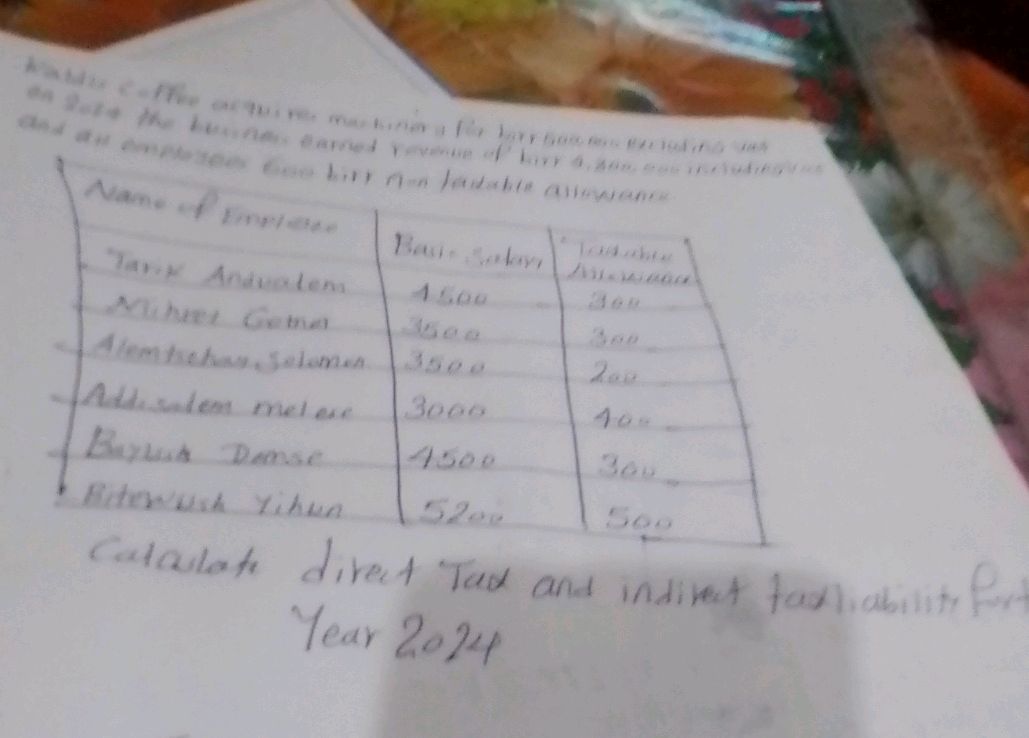 Coffee acquires machinery for birr excluding vat
on 2024 the business earned revenue of birr including vat
and all employees 600 birr non taxable allowance
Name of Employee Basic Salary Taxable Allowance
Tarik Andualem 4500 300
Mihret Getnet 3500 300
Alemtsehay Solomon 3500 200
Addisalem melese 3000 400
Bayush Demse 4500 300
Bitewush Yihun 5200 500
Calculate direct Tax and indirect tax liability for
Year 2024